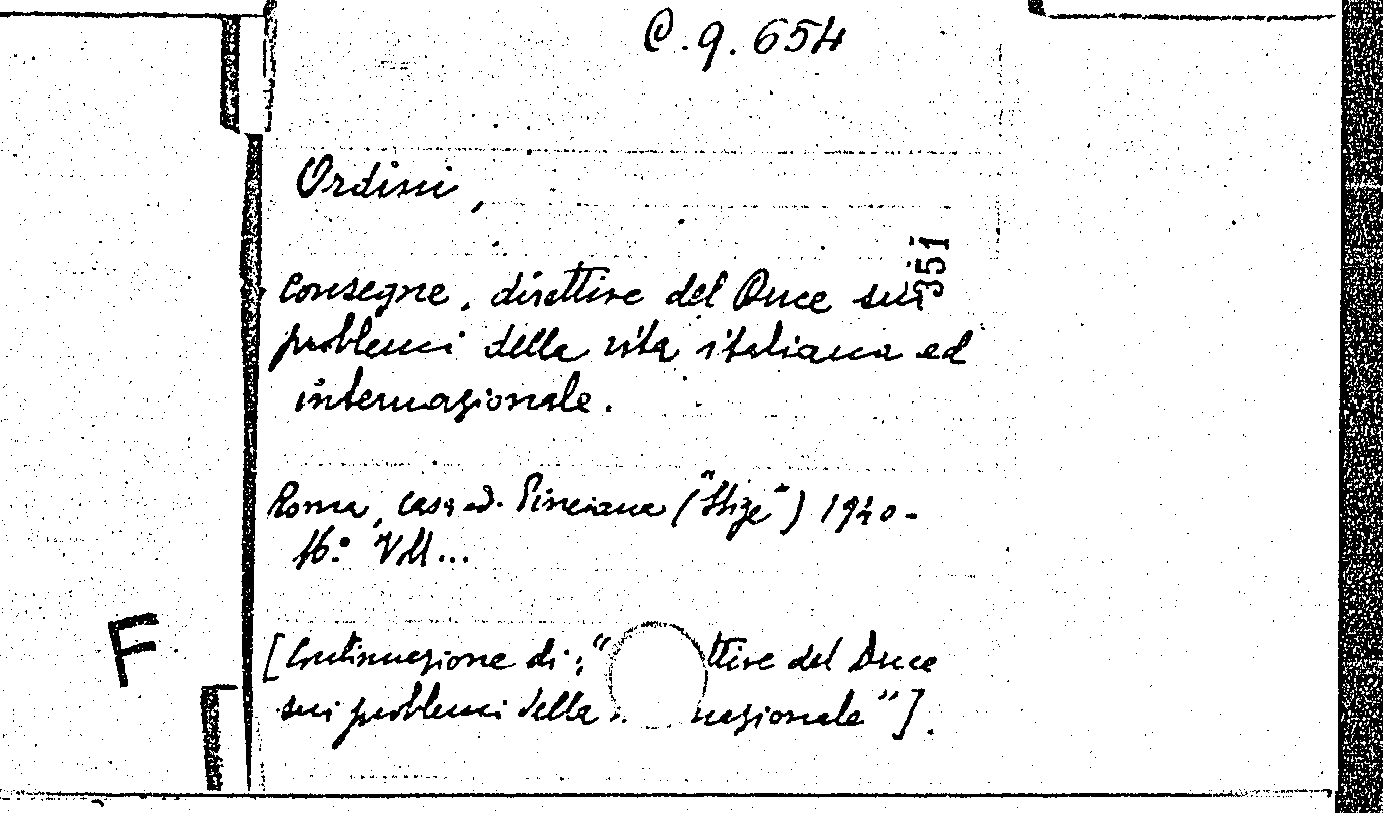 C.9.654
Ordini,
351
consegne, direttive del Duce sui
problemi della vita italiana ed
internazionale.
Roma, casa ed. Pinciana ("Stige") 1940-
16.° Vll...
F
[Continuazione di: " ttive del Duce
sui problemi della nazionale"].